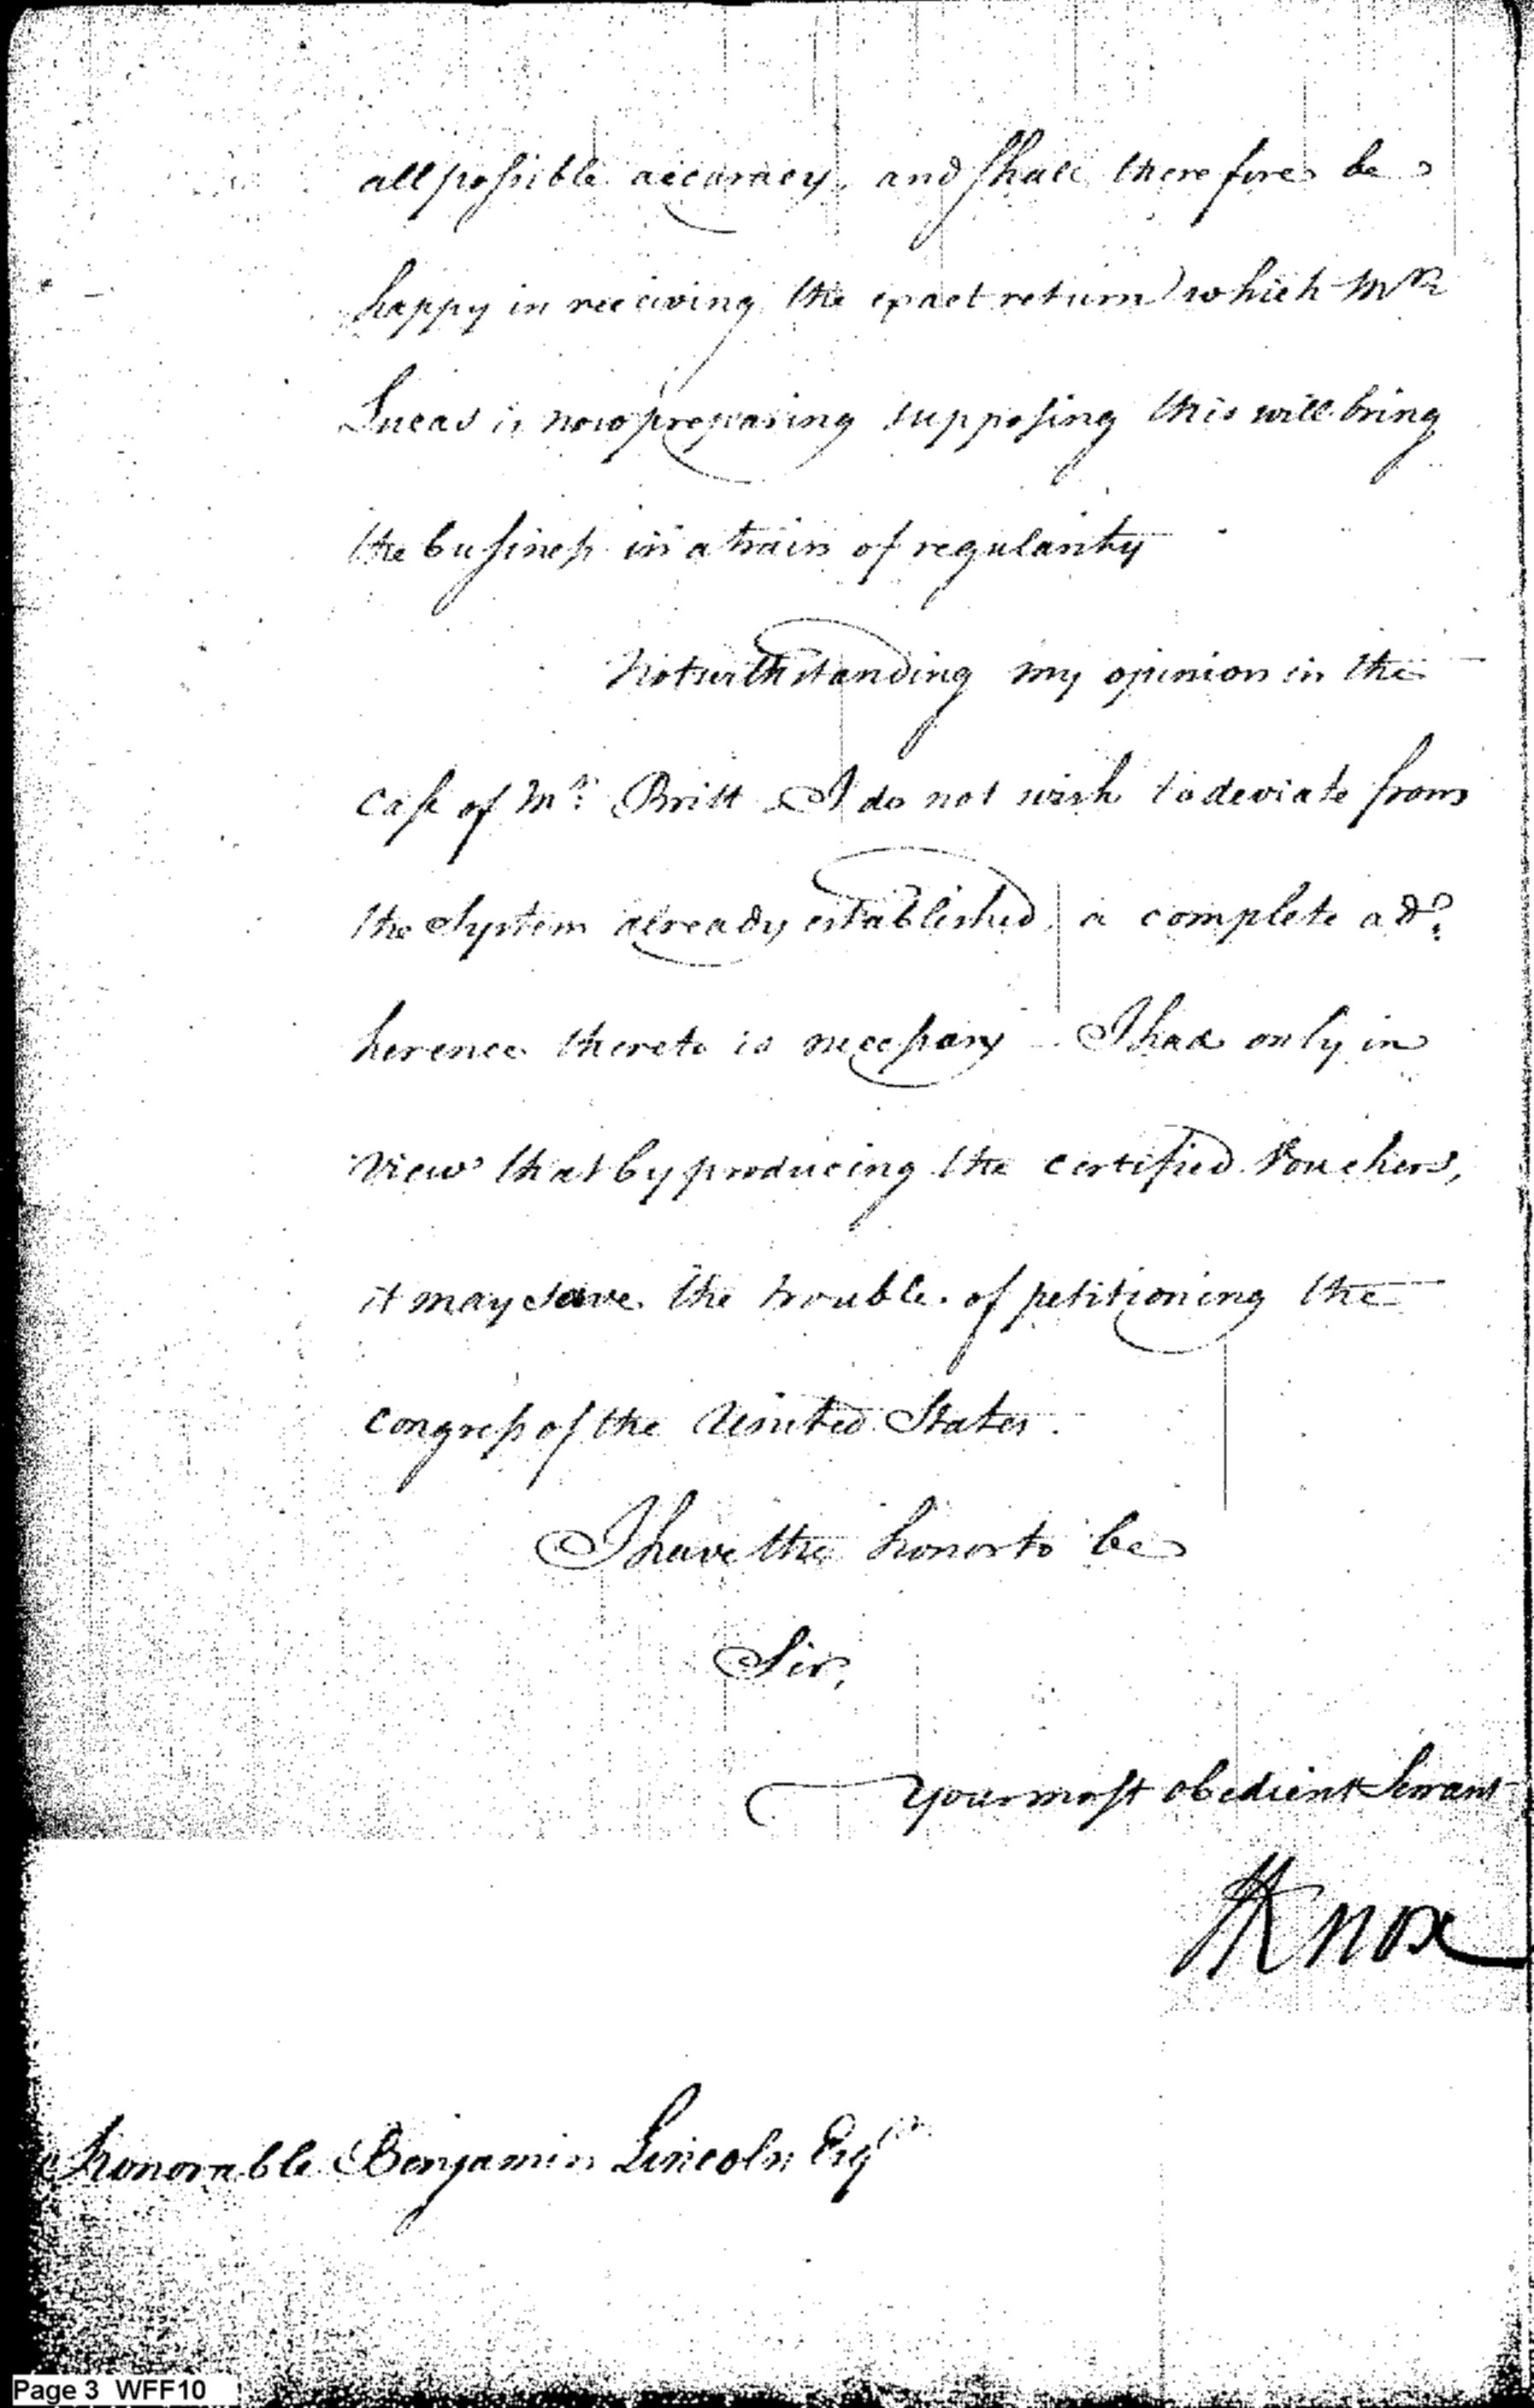 all possible accuracy, and shall therefore be
happy in receiving the exact return which Mr
Lucas is now preparing supposing this will bring
the business in a train of regularity
Notwithstanding my opinion in the
case of Mr. Britt I do not wish to deviate from
the System already established, a complete ad:
herence thereto is necessary - I had only in
view that by producing the certified Vouchers,
it may save the trouble of petitioning the
Congress of the United States.
I have the honor to be
Sir,
Your most obedient Servant
HKnox
Honorable Benjamin Lincoln Esqr
Page 3 WFF10